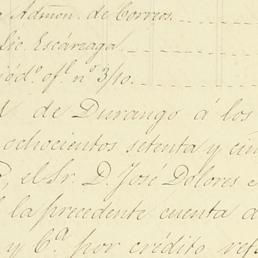 Admon. de Correos.
Lic. Escáreaga
iód.º of.l nº 3/10.
de Durango á los
ochocientos setenta y cin
el Sr. D. José Dolores
la precedente cuenta
y 6.ª por crédito ref